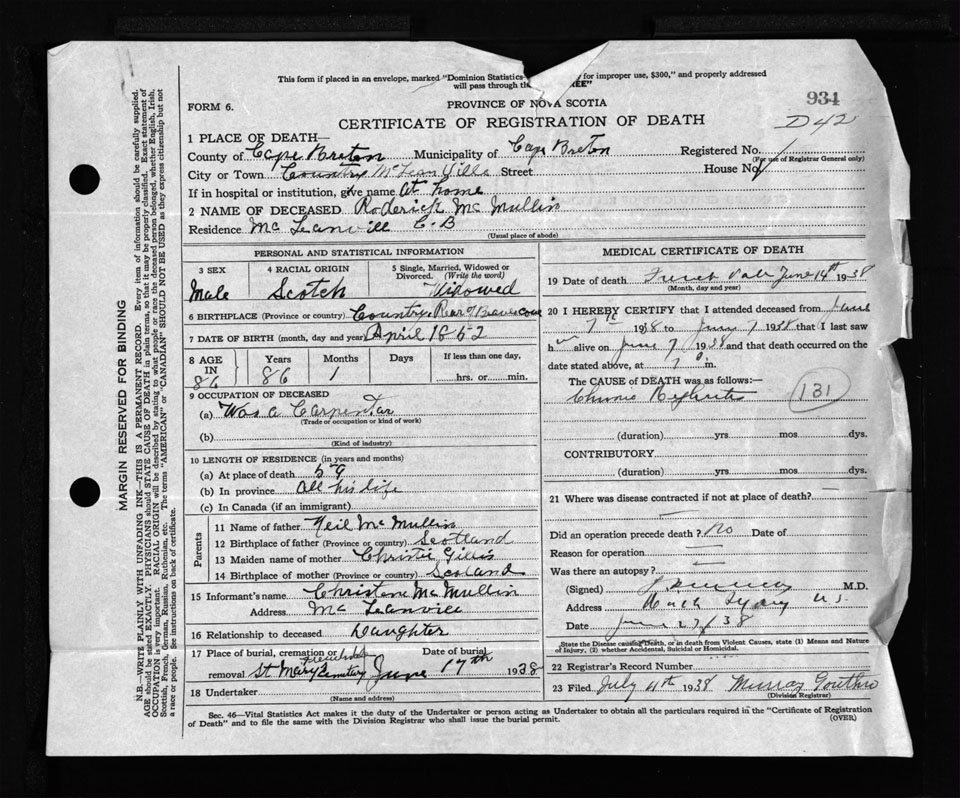 This form if placed in an envelope, marked "Dominion Statistics for improper use, $300," and properly addressed
will pass through
934
D42
FORM 6.
PROVINCE OF NOVA SCOTIA
CERTIFICATE OF REGISTRATION OF DEATH
1 PLACE OF DEATH—
County of Cape Breton Municipality of Cape Breton Registered No.
(For use of Registrar General only)
City or Town Country McLean Ville Street House No.
If in hospital or institution, give name At home
2 NAME OF DECEASED Roderick Mc Mullin
Residence Mc Leanvill C.B
(Usual place of abode)
PERSONAL AND STATISTICAL INFORMATION
3 SEX
Male
4 RACIAL ORIGIN
Scotch
5 Single, Married, Widowed or
Divorced. (Write the word)
Widowed
6 BIRTHPLACE (Province or country) Country Rear of Beaver Cove
7 DATE OF BIRTH (month, day and year) April 1852
8 AGE IN
86
Years
86
Months
1
Days
If less than one day,
hrs. or min.
9 OCCUPATION OF DECEASED
(a) Was a Carpenter
(Trade or occupation or kind of work)
(b)
(Kind of industry)
10 LENGTH OF RESIDENCE (in years and months)
(a) At place of death 59
(b) In province All his life
(c) In Canada (if an immigrant)
Parents
11 Name of father Neil Mc Mullin
12 Birthplace of father (Province or country) Scotland
13 Maiden name of mother Christie Gillis
14 Birthplace of mother (Province or country) Scoland
15 Informant's name Christene Mc Mullin
Address Mc Leanvill
16 Relationship to deceased Daughter
17 Place of burial, cremation or Date of burial
removal St Mary Cemetery June 17th 1938
18 Undertaker
(Name and address)
MEDICAL CERTIFICATE OF DEATH
19 Date of death June 14th 1938
(Month, day and year)
20 I HEREBY CERTIFY that I attended deceased from
1938 to June 7 1938 that I last saw
h alive on June 7 1938 and that death occurred on the
date stated above, at 7 m.
The CAUSE OF DEATH was as follows:—
Chronic Nephritis
131
(duration) yrs mos dys.
CONTRIBUTORY
(duration) yrs mos dys.
21 Where was disease contracted if not at place of death?
Did an operation precede death? No Date of
Reason for operation
Was there an autopsy?
(Signed) M.D.
Address
Date June 27/38
State the Disease causing Death, or in death from Violent Causes, state (1) Means and Nature
of Injury, (2) whether Accidental, Suicidal or Homicidal.
22 Registrar's Record Number
23 Filed July 4th 1938 Murray
(Division Registrar)
Sec. 46—Vital Statistics Act makes it the duty of the Undertaker or person acting as Undertaker to obtain all the particulars required in the "Certificate of Registration
of Death" and to file the same with the Division Registrar who shall issue the burial permit.
(OVER)
MARGIN RESERVED FOR BINDING
N.B.—WRITE PLAINLY WITH UNFADING INK—THIS IS A PERMANENT RECORD. Every item of information should be carefully supplied.
AGE should be stated EXACTLY. PHYSICIANS should STATE CAUSE OF DEATH in plain terms, so that it may be properly classified. Exact statement of
OCCUPATION is very important. RACIAL ORIGIN will be described by stating to what people or race the deceased person belonged, whether English, Irish,
Scottish, French, German, Russian, Ruthenian, etc. The terms "AMERICAN" or "CANADIAN" SHOULD NOT BE USED as they express citizenship but not
a race or people. See instructions on back of certificate.